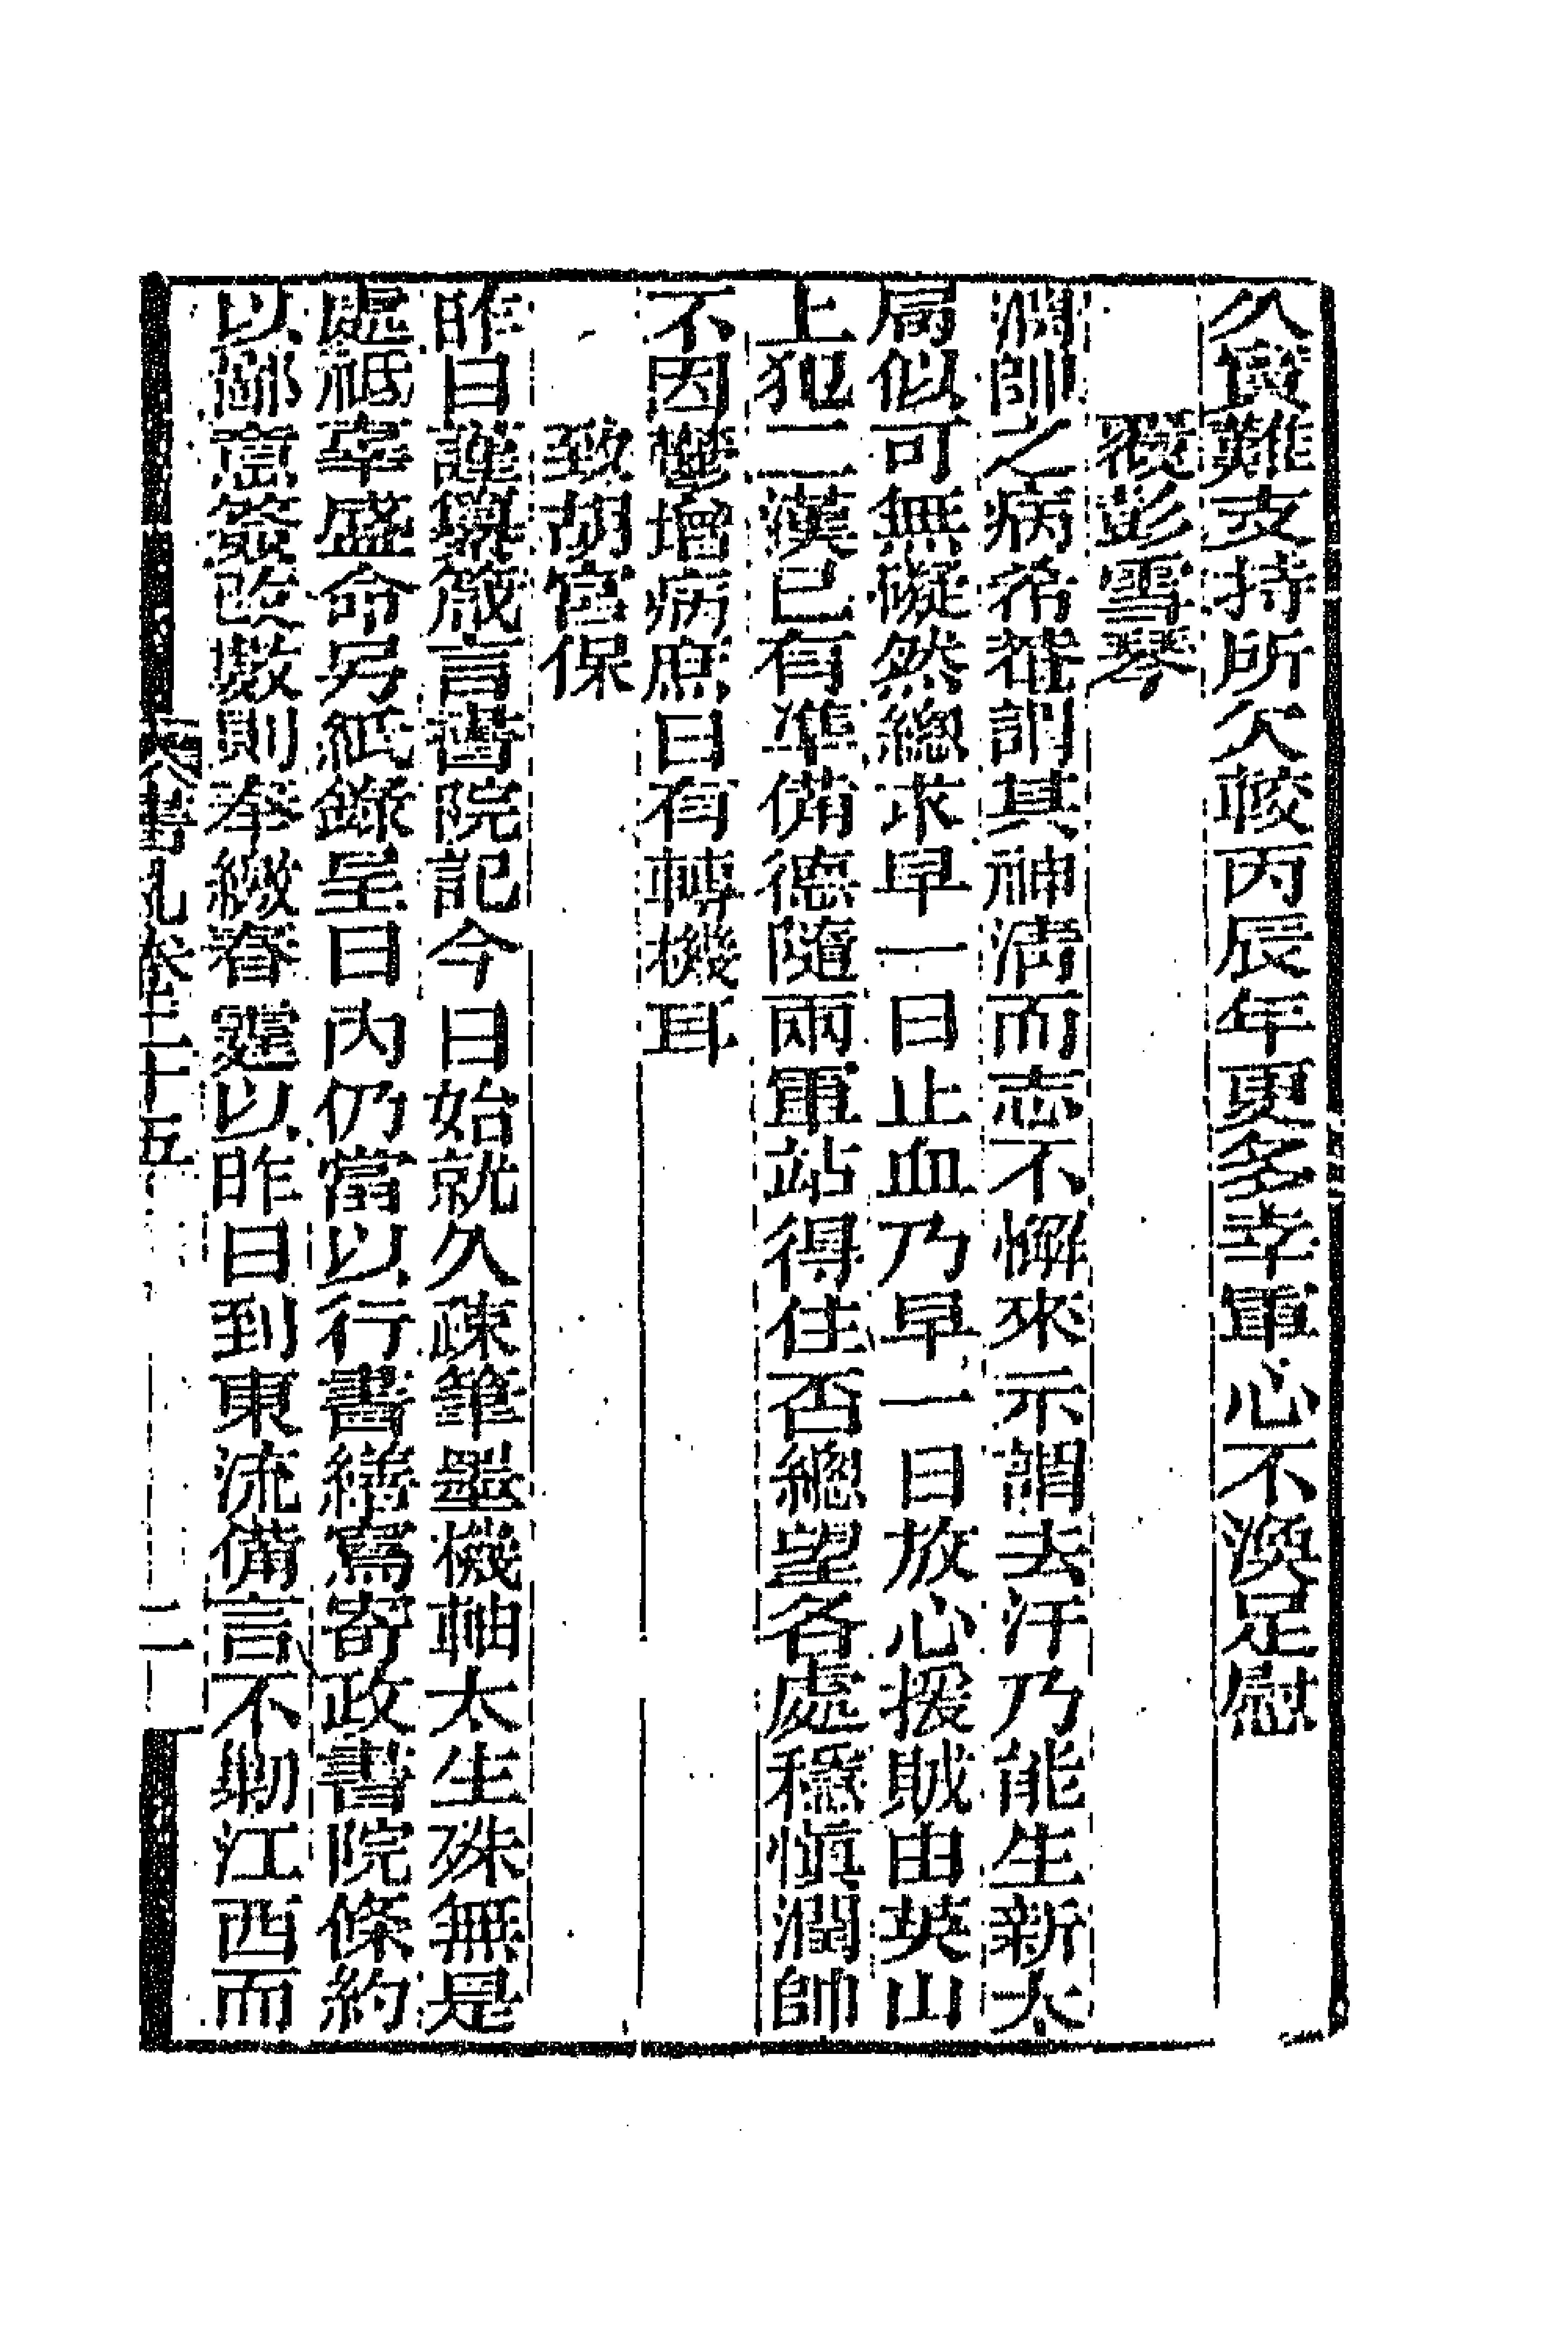 久良難支持所欠較丙辰年更多幸軍心不渙足慰
覆彭雪琴
潤帥之病希菴謂其神清而志不懈來示謂去汙乃能生新大
局似可無礙然總求早一日止血乃早一日放心援賊由英山
上犯二漢已有準備德隨兩軍站得住否總望各處穩慎潤帥
不因鬱增病庶日有轉機耳
致胡宮保
昨日謹撰箴言書院記今日始就久疎筆墨機軸太生殊無是
處祗率盛命另紙錄呈日內仍當以行書繕寫寄政書院條約
以鄙意簽改數則奉繳春霆以昨日到東流備言不剿江西而
書札卷二十五
二